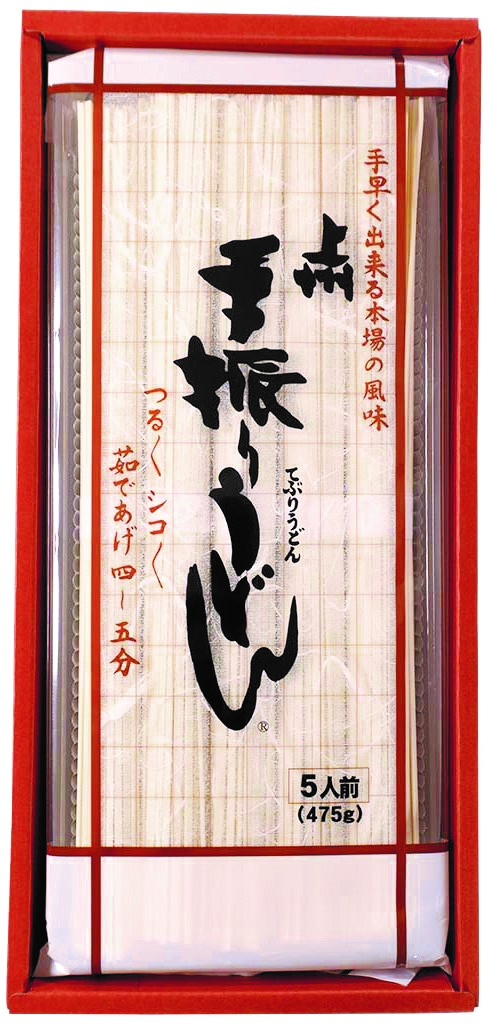 手早く出来る本場の風味
上州
手振りうどん
てぶりうどん
®
つる〱シコ〱
茹であげ四〜五分
5人前
(475g)